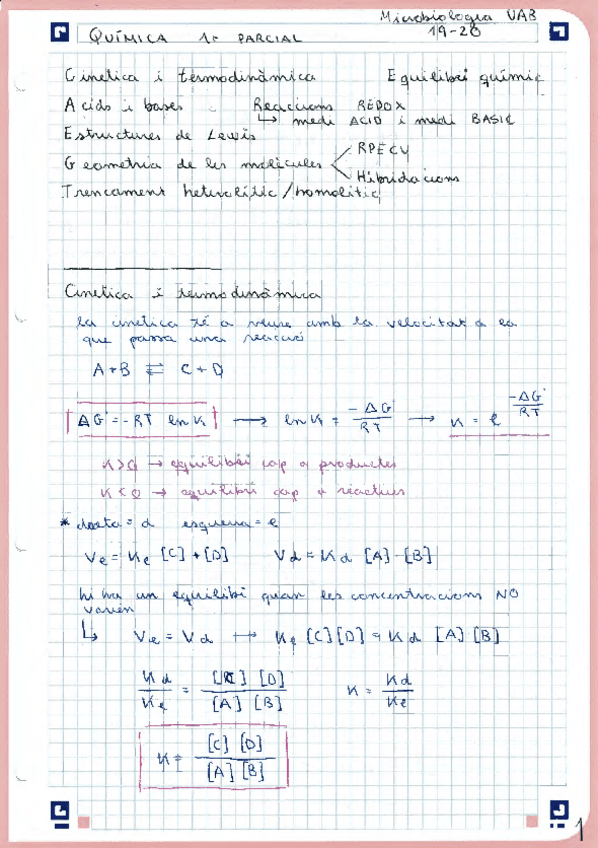 Microbiologia UAB
19-20
QUÍMICA 1r PARCIAL
Cinètica i termodinàmica Equilibri químic
Acids i bases Reaccions REDOX
↳ medi ACID i medi BASIC
Estructures de Lewis
Geometria de les molècules < RPECV
Hibridacions
Trencament heterolític/homolític
Cinètica i termodinàmica
La cinetica té a veure amb la velocitat a la
que passa una reacció
A+B ⇄ C+D
ΔG°=-RT ln K → ln K = -ΔG°/RT → K = e^(-ΔG°/RT)
K>Q → equilibri cap a productes
K<Q → equilibri cap a reactius
* dreta = d esquerra = e
Ve = Ke [C]+[D] Vd = Kd [A]-[B]
hi ha un equilibi quan les concentracions NO
varien
↳ Ve = Vd → Ke [C][D] = Kd [A][B]
Kd/Ke = [C][D]/[A][B] K = Kd/Ke
K = [C][D]/[A][B]
1